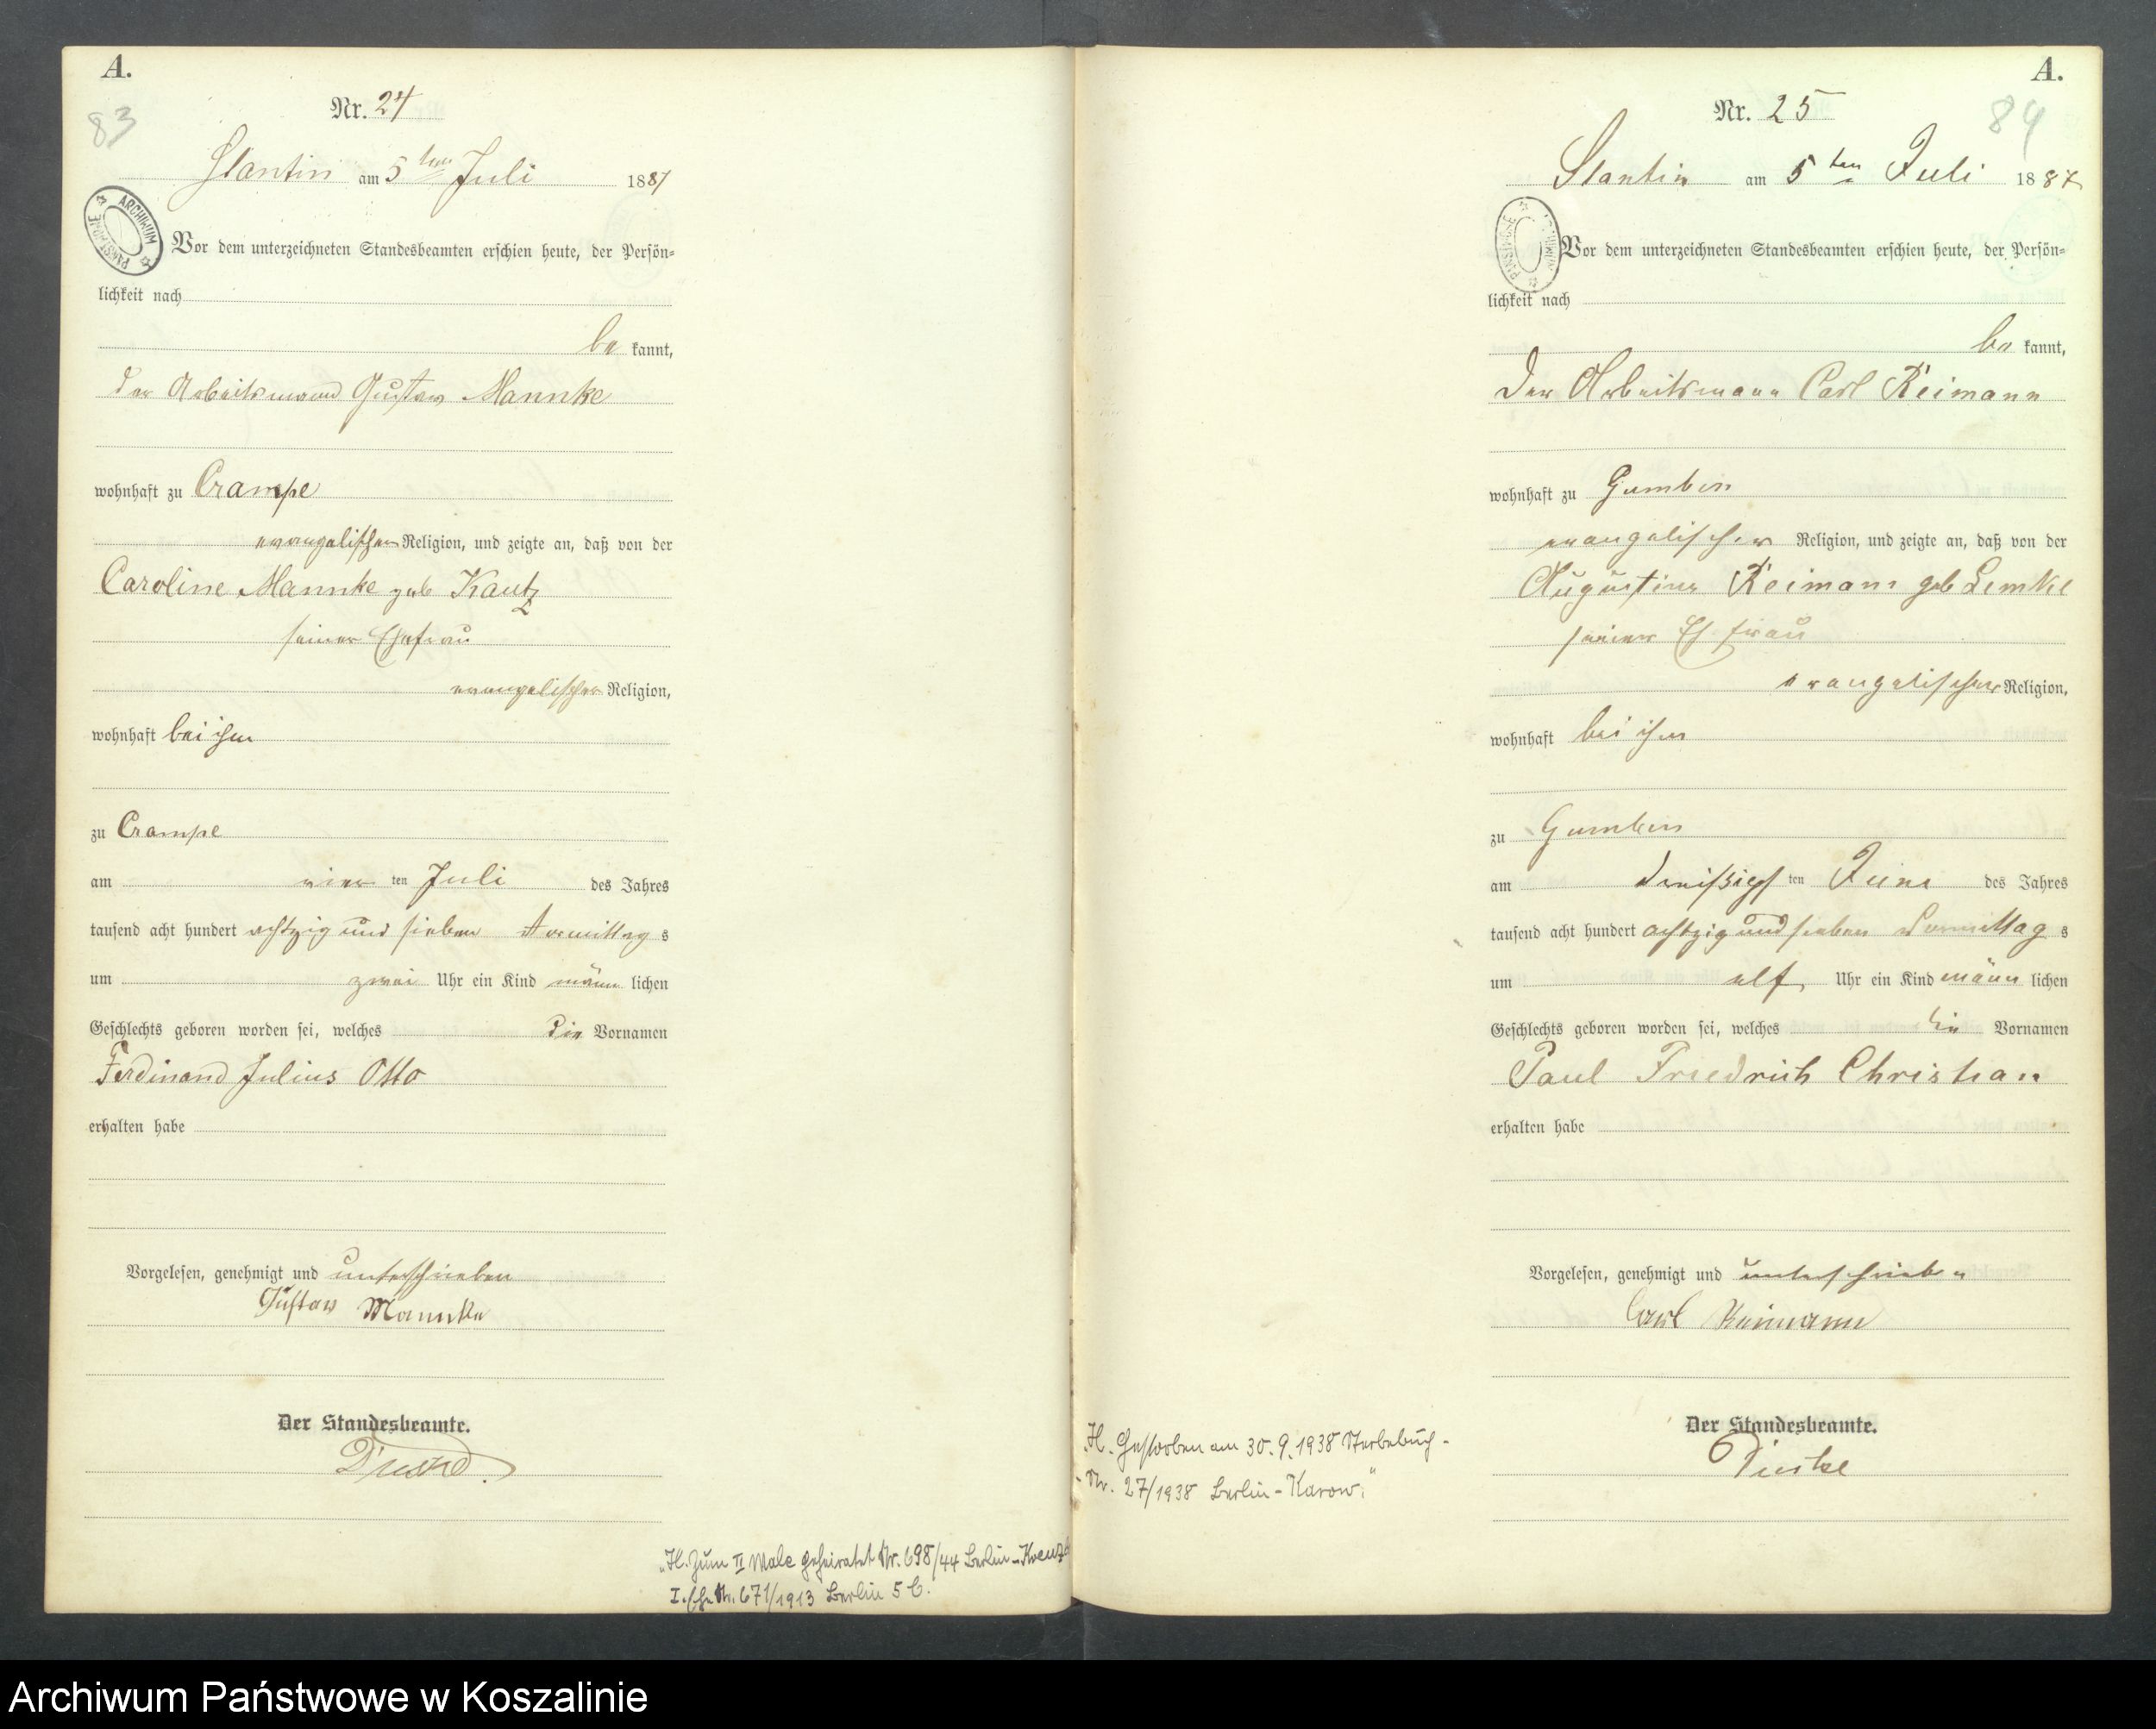 A.
83
Nr. 24
Stantin am 5ten Juli 1887
ARCHIWUM PAŃSTWOWE
Vor dem unterzeichneten Standesbeamten erschien heute, der Persön=
lichkeit nach
be kannt,
der Arbeitsmann Gustav Mannke
wohnhaft zu Crampe
evangelischer Religion, und zeigte an, daß von der
Caroline Mannke geb Kautz
seiner Ehefrau
evangelischer Religion,
wohnhaft bei ihm
zu Crampe
am vier ten Juli des Jahres
tausend acht hundert achtzig und sieben Vormittag s
um zwei Uhr ein Kind männ lichen
Geschlechts geboren worden sei, welches die Vornamen
Ferdinand Julius Otto
erhalten habe
Vorgelesen, genehmigt und unterschrieben
Gustav Mannke
Der Standesbeamte.
„H. Zum II Male geheiratet Nr. 698/44 Berlin-Kreuzb
I. Ehe Nr. 671/1913 Berlin 5 b.
A.
84
Nr. 25
Stantin am 5ten Juli 1887
ARCHIWUM PAŃSTWOWE
Vor dem unterzeichneten Standesbeamten erschien heute, der Persön=
lichkeit nach
be kannt,
Der Arbeitsmann Carl Reimann
wohnhaft zu Gumbin
evangelischer Religion, und zeigte an, daß von der
Augustine Reimann geb Lemke
seiner Ehfrau
evangelischer Religion,
wohnhaft bei ihm
zu Gumbin
am dreißigs ten Juni des Jahres
tausend acht hundert achtzig und sieben Vormittag s
um elf Uhr ein Kind männ lichen
Geschlechts geboren worden sei, welches die Vornamen
Paul Friedrich Christian
erhalten habe
Vorgelesen, genehmigt und unterschrieben
Carl Reimann
Der Standesbeamte.
„H. Gestorben am 30.9.1938 Sterbebuch-
-Nr. 27/1938 Berlin-Karow."
Archiwum Państwowe w Koszalinie